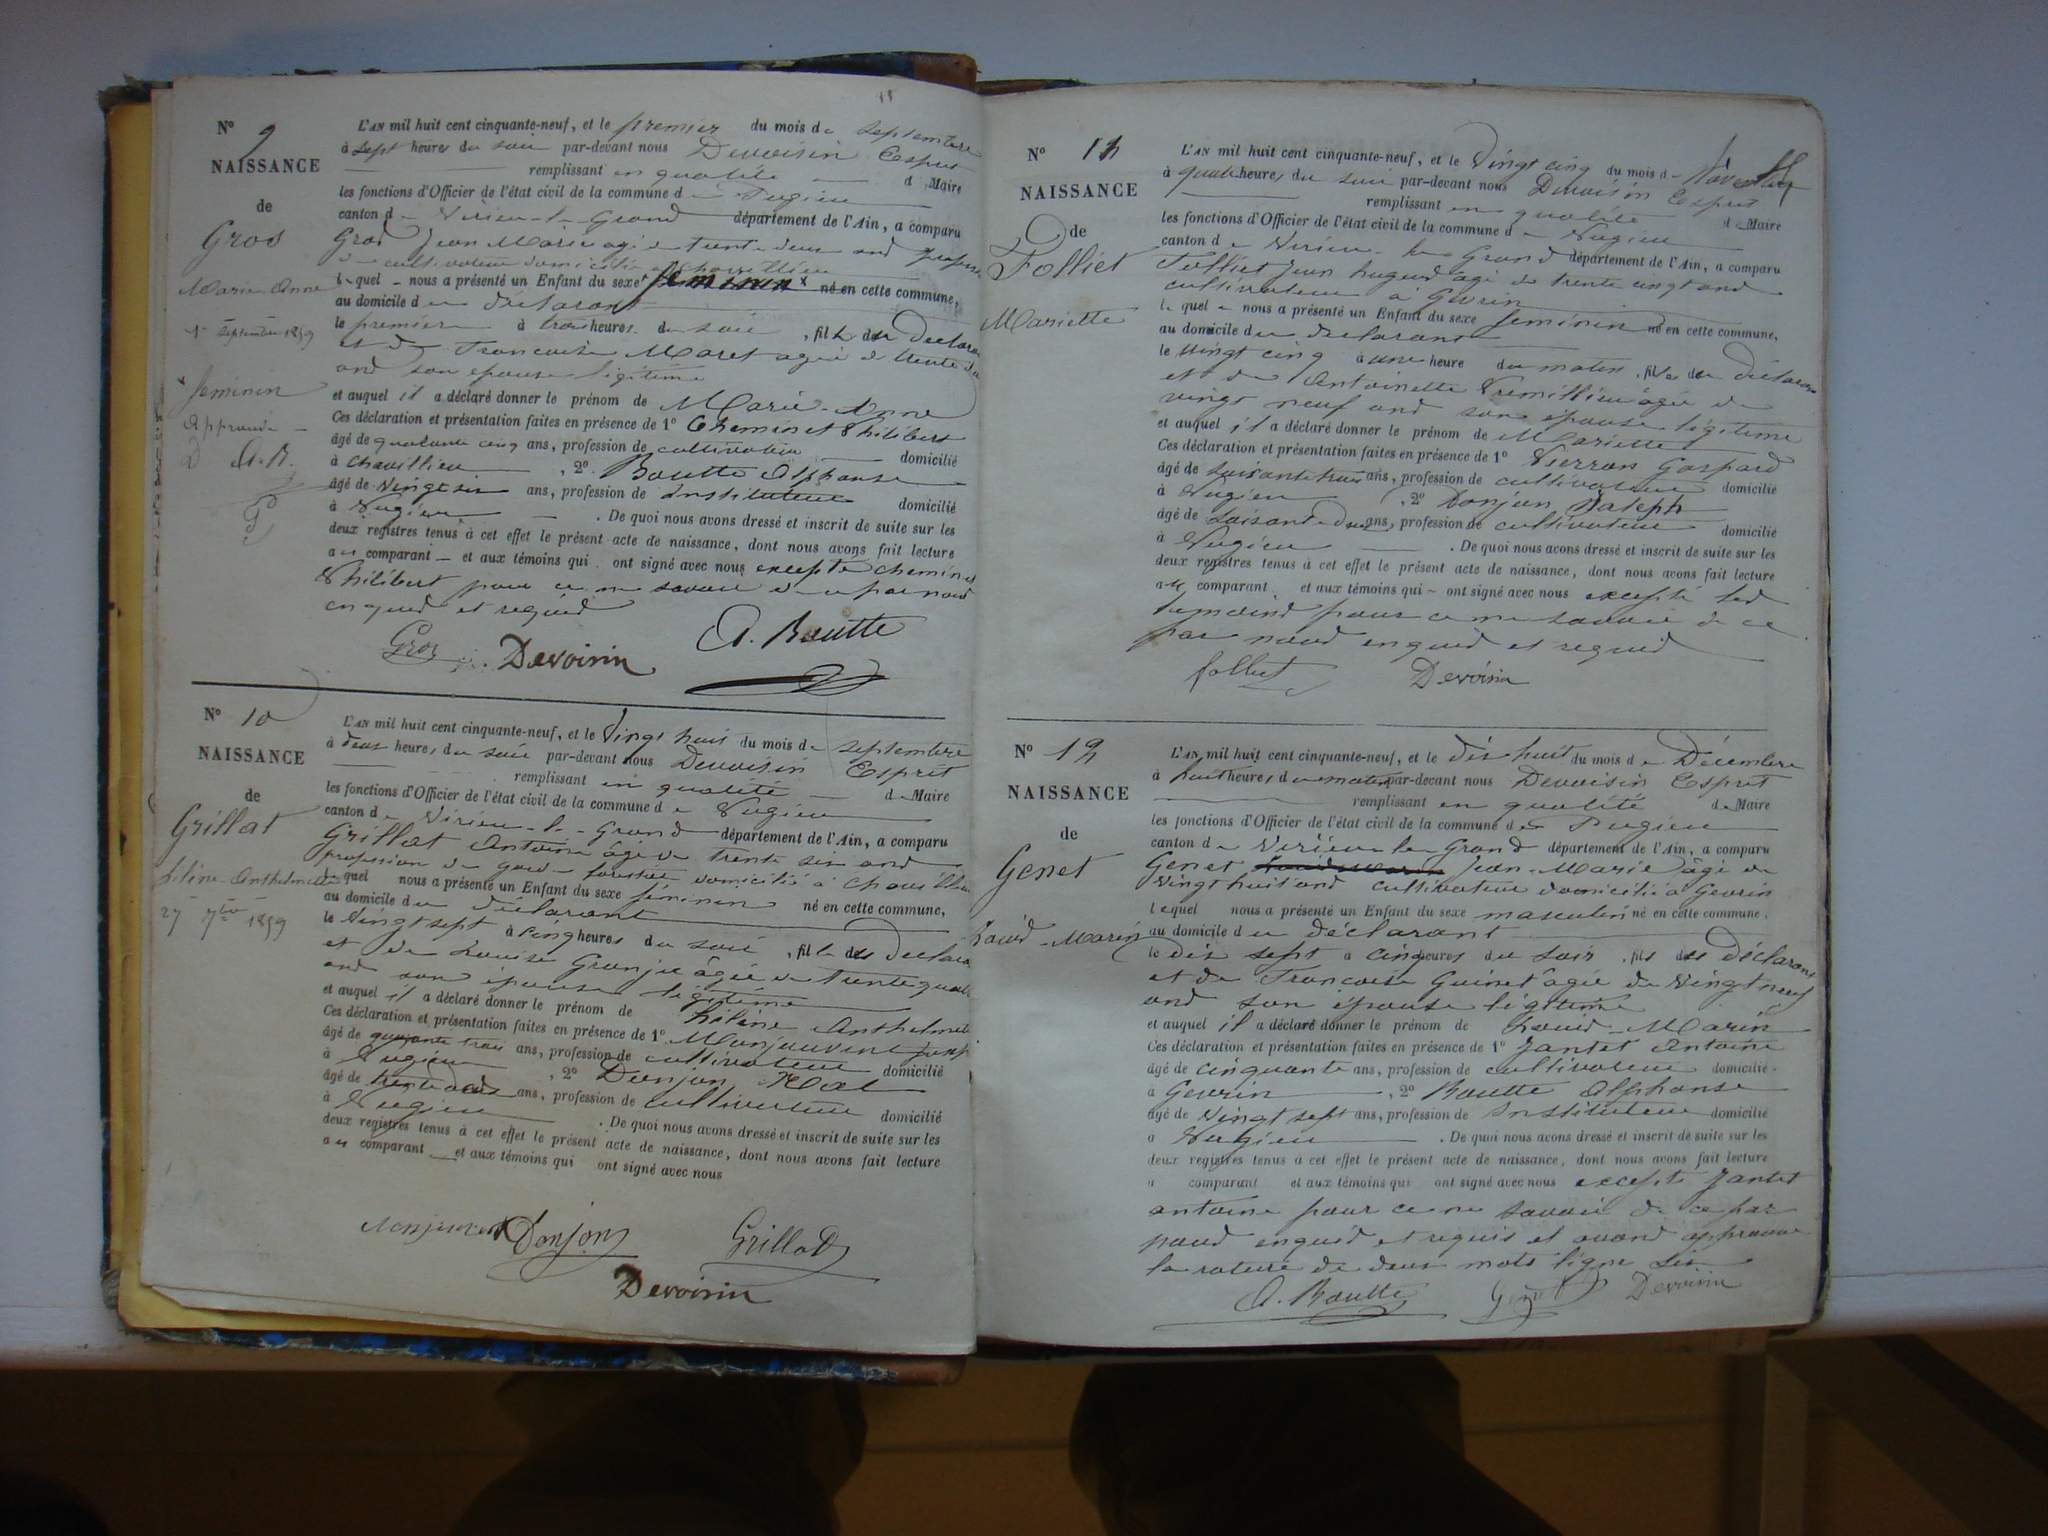 N° 9
NAISSANCE
de
Gros
Marie-Anne
1er septembre 1859
x féminin
Approuvé
D A.B.
L'AN mil huit cent cinquante-neuf, et le premier du mois de septembre
à sept heures du soir par-devant nous Devoisin Esprit
remplissant en qualité de Maire
les fonctions d'Officier de l'état civil de la commune de Pugieu
canton de Virieu-le-Grand département de l'Ain, a comparu
Gros Jean Marie agé de trente deux ans profession
de cultivateur domicilié à Chavillieu
lequel nous a présenté un Enfant du sexe x né en cette commune,
au domicile du déclarant
le premier à trois heures du soir, fille du Déclarant
et de Françoise Maret agée de trente
ans son épouse légitime
et auquel il a déclaré donner le prénom de Marie-Anne
Ces déclaration et présentation faites en présence de 1° Cheminet Philibert
âgé de quarante cinq ans, profession de cultivateur domicilié
à Chavillieu, 2° Boutte Alphonse
âgé de vingt six ans, profession de Instituteur domicilié
à Pugieu. De quoi nous avons dressé et inscrit de suite sur les
deux registres tenus à cet effet le présent acte de naissance, dont nous avons fait lecture
au comparant et aux témoins qui ont signé avec nous excepté cheminet
Philibert pour ce ne savoir de ce par nous
enquis et requis
Gros Devoisin A. Boutte
N° 10
NAISSANCE
de
Grillat
héline-Anthelmette
27 7bre 1859
L'AN mil huit cent cinquante-neuf, et le vingt huit du mois de septembre
à deux heures du soir par-devant nous Devoisin Esprit
remplissant en qualité de Maire
les fonctions d'Officier de l'état civil de la commune de Pugieu
canton de Virieu-le-Grand département de l'Ain, a comparu
Grillat Antoine âgé de trente six ans
profession de garde forestier domicilié à Chavillieu
lequel nous a présenté un Enfant du sexe féminin né en cette commune,
au domicile du déclarant
le vingt sept à cinq heures du soir, fille du Déclarant
et de Louise Granjic âgée de trente quatre
ans son épouse légitime
et auquel il a déclaré donner le prénom de héline Anthelmette
Ces déclaration et présentation faites en présence de 1° Monjeuvent
âgé de quarante trois ans, profession de cultivateur domicilié
à Pugieu, 2° Donjon
âgé de trente ans, profession de cultivateur domicilié
à Pugieu. De quoi nous avons dressé et inscrit de suite sur les
deux registres tenus à cet effet le présent acte de naissance, dont nous avons fait lecture
au comparant et aux témoins qui ont signé avec nous
Monjeuvent Donjon Grillat
Devoisin
N° 11
NAISSANCE
de
Folliet
Mariette
L'AN mil huit cent cinquante-neuf, et le vingt cinq du mois de Novembre
à quatre heures du soir par-devant nous Devoisin Esprit
remplissant en qualité de Maire
les fonctions d'Officier de l'état civil de la commune de Pugieu
canton de Virieu-le-Grand département de l'Ain, a comparu
Folliet Jean hugues agé de trente cinq ans
cultivateur à Gevrin
lequel nous a présenté un Enfant du sexe féminin né en cette commune,
au domicile du déclarant
le vingt cinq à une heure du matin, fille du déclarant
et de Antoinette Vremillieu âgée de
vingt neuf ans son épouse légitime
et auquel il a déclaré donner le prénom de Mariette
Ces déclaration et présentation faites en présence de 1° Gaspard
âgé de soixante trois ans, profession de cultivateur domicilié
à Pugieu, 2° Donjon Joseph
âgé de soixante deux ans, profession de cultivateur domicilié
à Pugieu. De quoi nous avons dressé et inscrit de suite sur les
deux registres tenus à cet effet le présent acte de naissance, dont nous avons fait lecture
au comparant et aux témoins qui ont signé avec nous excepté les
témoins pour ce ne savoir de ce
par nous enquis et requis
folliet Devoisin
N° 12
NAISSANCE
de
Genet
Louis-Marin
L'AN mil huit cent cinquante-neuf, et le dix huit du mois de Décembre
à huit heures du matin par-devant nous Devoisin Esprit
remplissant en qualité de Maire
les fonctions d'Officier de l'état civil de la commune de Pugieu
canton de Virieu-le-Grand département de l'Ain, a comparu
Genet Jean-Marie âgé de
vingt huit ans cultivateur domicilié à Gevrin
lequel nous a présenté un Enfant du sexe masculin né en cette commune,
au domicile du déclarant
le dix sept à cinq heures du soir, fils du Déclarant
et de Françoise Guinet âgée de vingt neuf
ans son épouse légitime
et auquel il a déclaré donner le prénom de Louis-Marin
Ces déclaration et présentation faites en présence de 1° Jantet Antoine
âgé de cinquante ans, profession de cultivateur domicilié
à Gevrin, 2° Boutte Alphonse
âgé de vingt sept ans, profession de Instituteur domicilié
à Pugieu. De quoi nous avons dressé et inscrit de suite sur les
deux registres tenus à cet effet le présent acte de naissance, dont nous avons fait lecture
a comparant et aux témoins qui ont signé avec nous excepté Jantet
antoine pour ce ne savoir de ce par
nous enquis et requis et avons approuvé
la rature de deux mots ligne six
A. Boutte Genet Devoisin